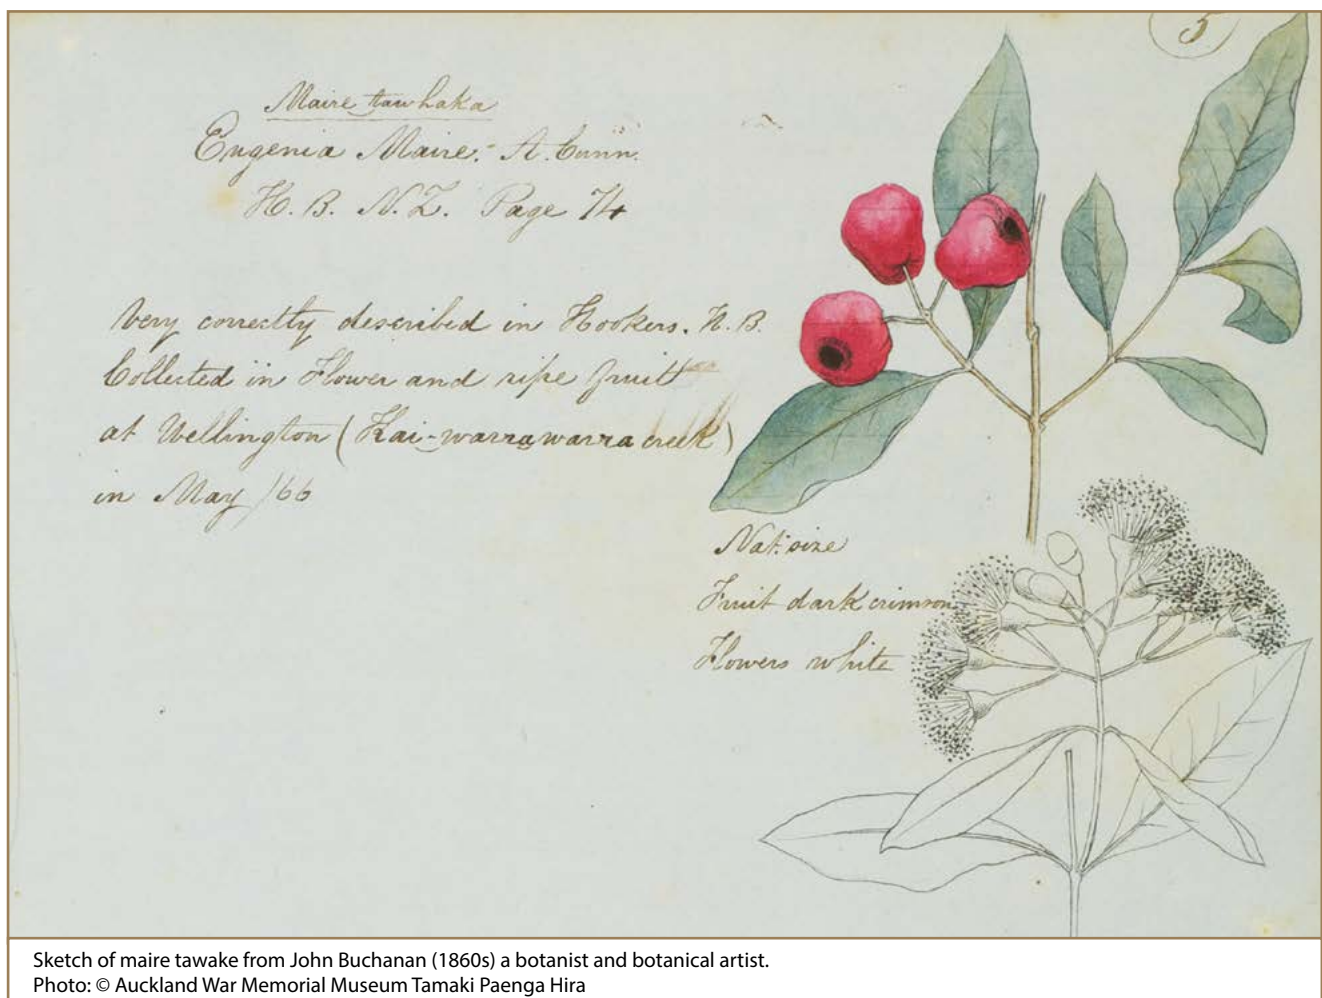 5
Maire tawhaka
Eugenia Maire: A. Cunn.
H. B. N. Z. Page 74
Very correctly described in Hookers. H. B.
Collected in Flower and ripe fruit
at Wellington (Kai-warra warra creek)
in May /66
Nat: size
Fruit dark crimson
Flowers white
Sketch of maire tawake from John Buchanan (1860s) a botanist and botanical artist.
Photo: © Auckland War Memorial Museum Tamaki Paenga Hira